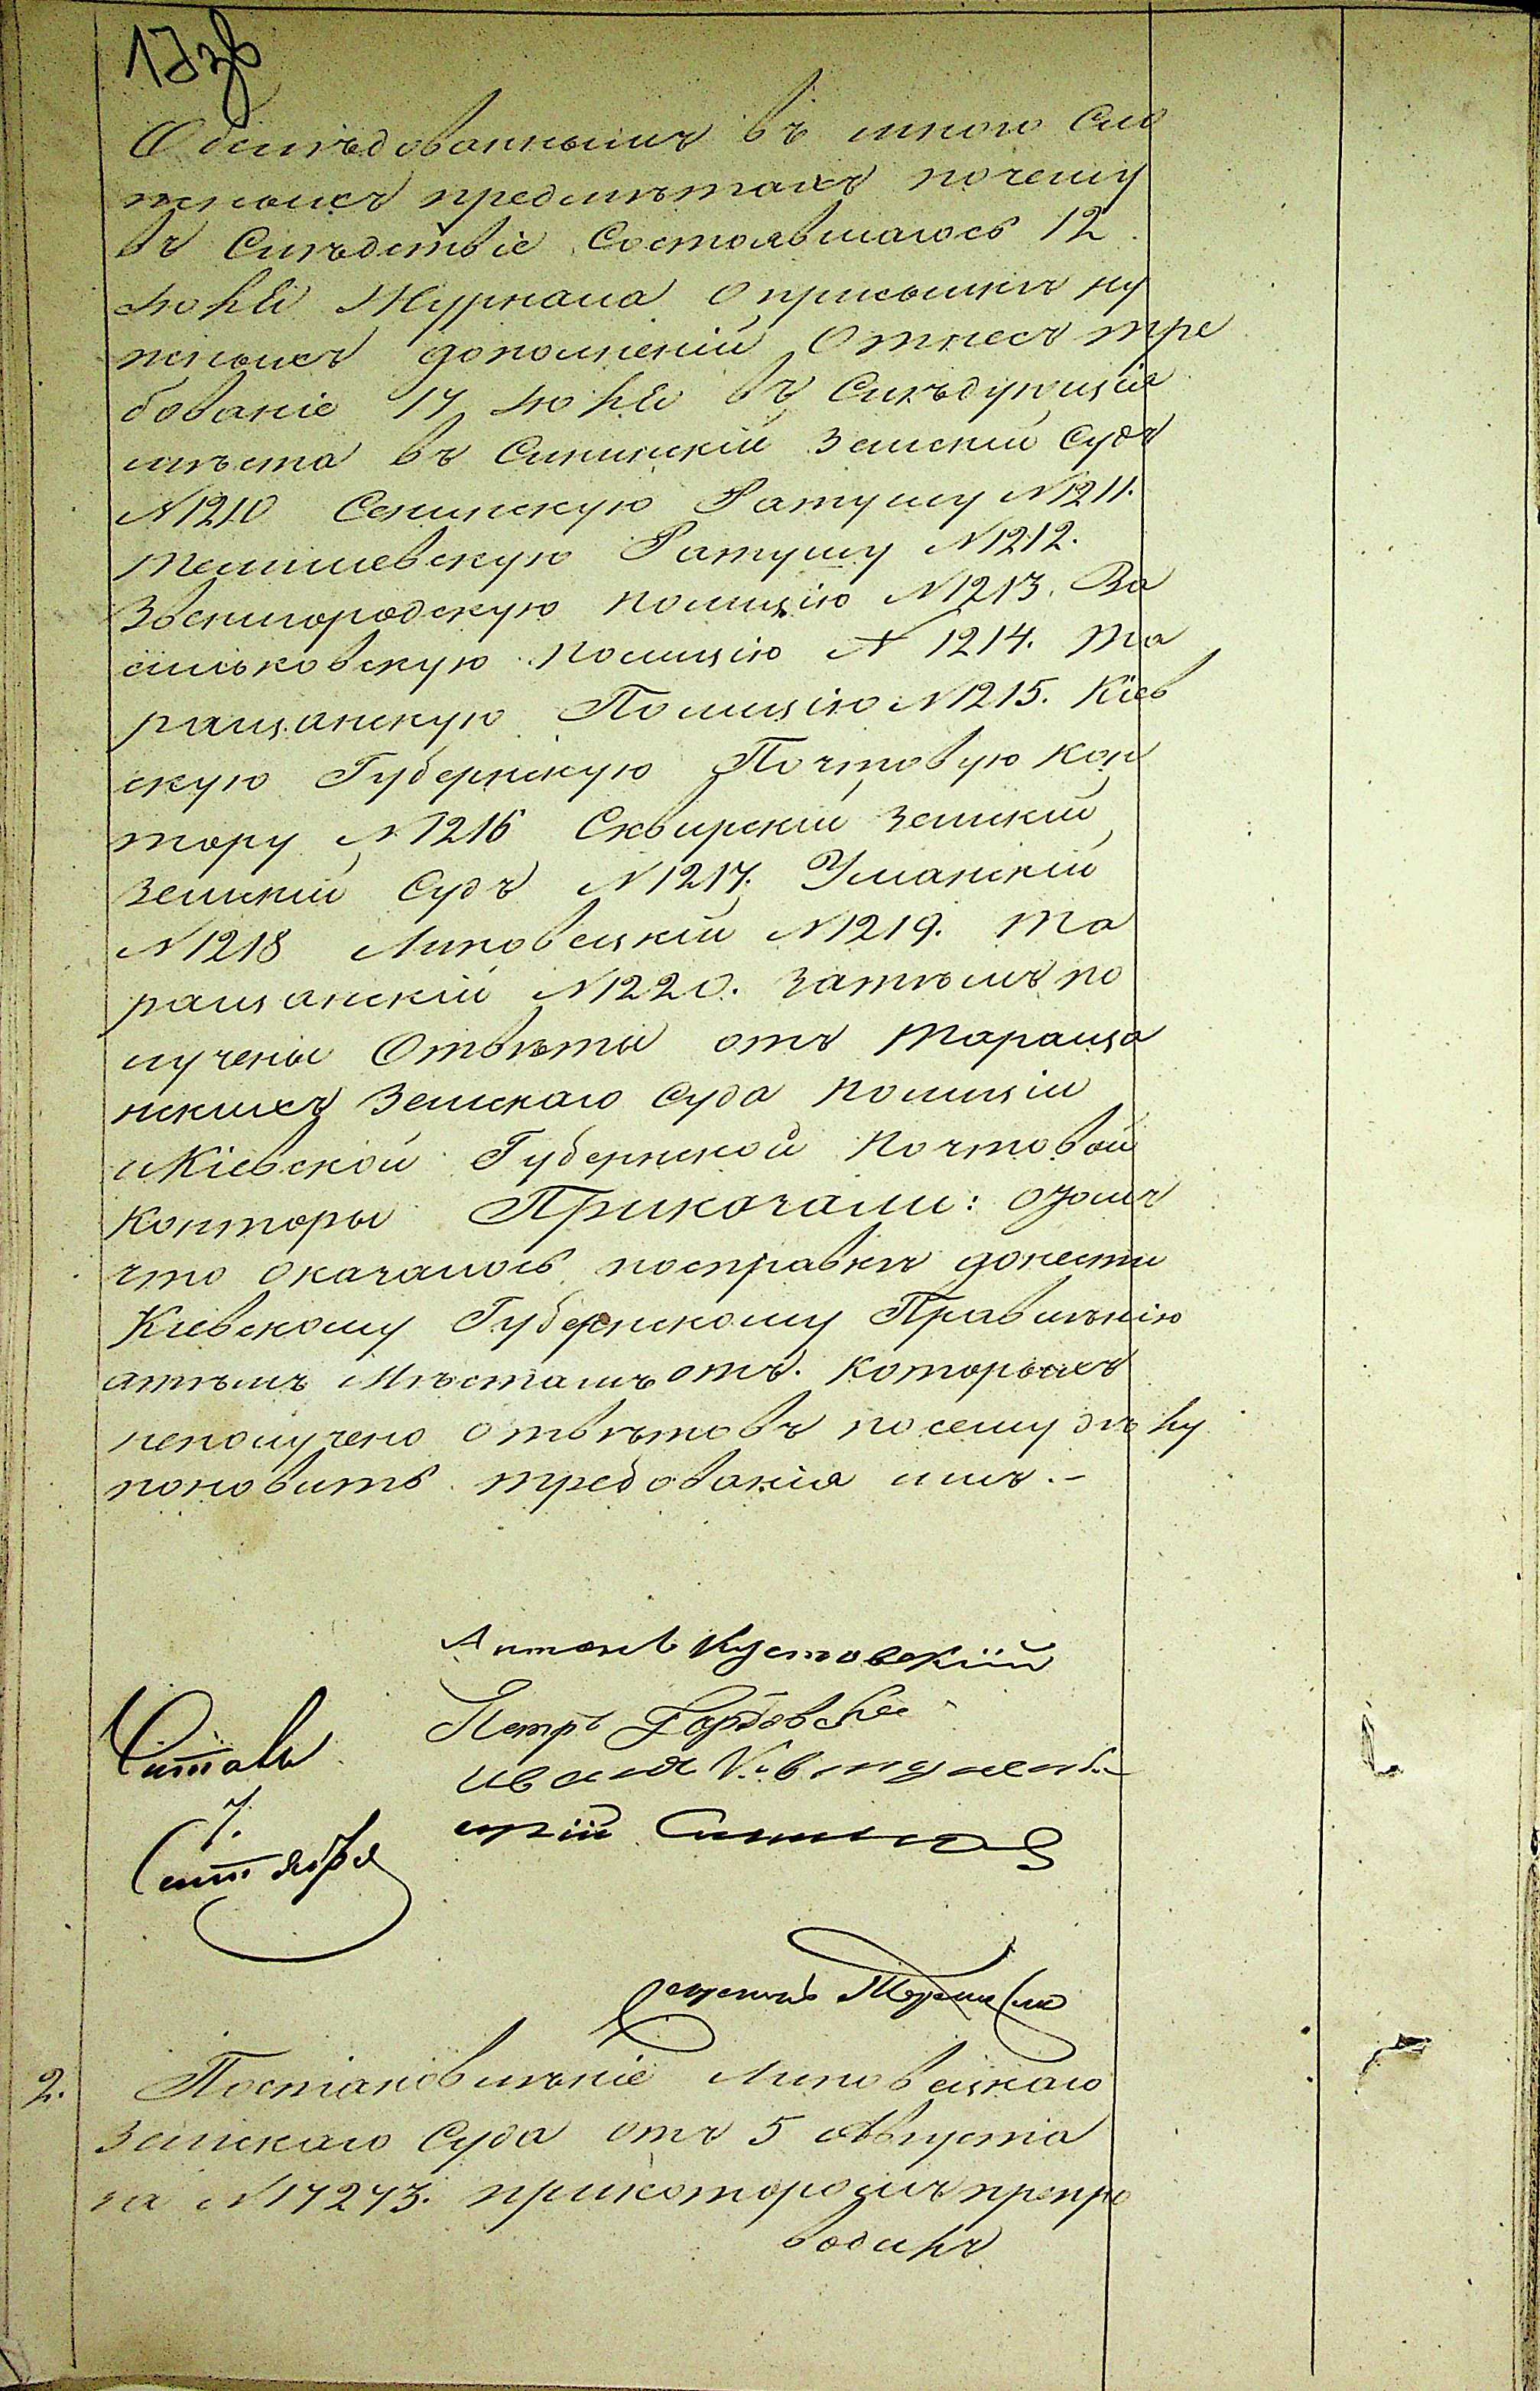 Обслѣдованнымъ въ много сло
жныхъ предмѣтахъ почему
въ Слѣдствіе Состоявшагося 12
Іюня Журнала о присылкѣ ну
жныхъ дополненій Отнесъ тре
бованіе 17 Іюня въ Слѣдующія
мѣста въ Скпинскій Земскій Судъ
N 1210 Секинскую Ратушу N 1211.
Телпиевскую Ратушу N 1212.
Звенигородскую полицію N 1213. Ва
сильковскую полицію N 1214. Та
ращанскую Полицію N 1215. Кіев
скую Губернскую Почтовую Кон
тору N 1216 Сквирскій Земский
Земский Судъ N 1217. Уманскій
N 1218 Липовецкій N 1219. Та
ращанскій N 1220. затѣмъ по
лучены Отвѣты отъ Тараща
нскихъ Земскаго Суда полиціи
и Кіевской Губернской Почтовой
Конторы Приказали: о томъ
что оказалось по справкѣ донести
Кіевскому Губернскому Правленію
а тѣмъ Мѣстамъ отъ которыхъ
неполучено отвѣтовъ по сему дѣлу
поновить требованія имъ.-
Антонъ Кустовскій
Петръ
Иванъ
Юрій
Читалъ
7.
Сентября
2. Постановленіе Липовецкаго
Земскаго Суда отъ 5 Августа
за N 17273. при которомъ препро
водилъ